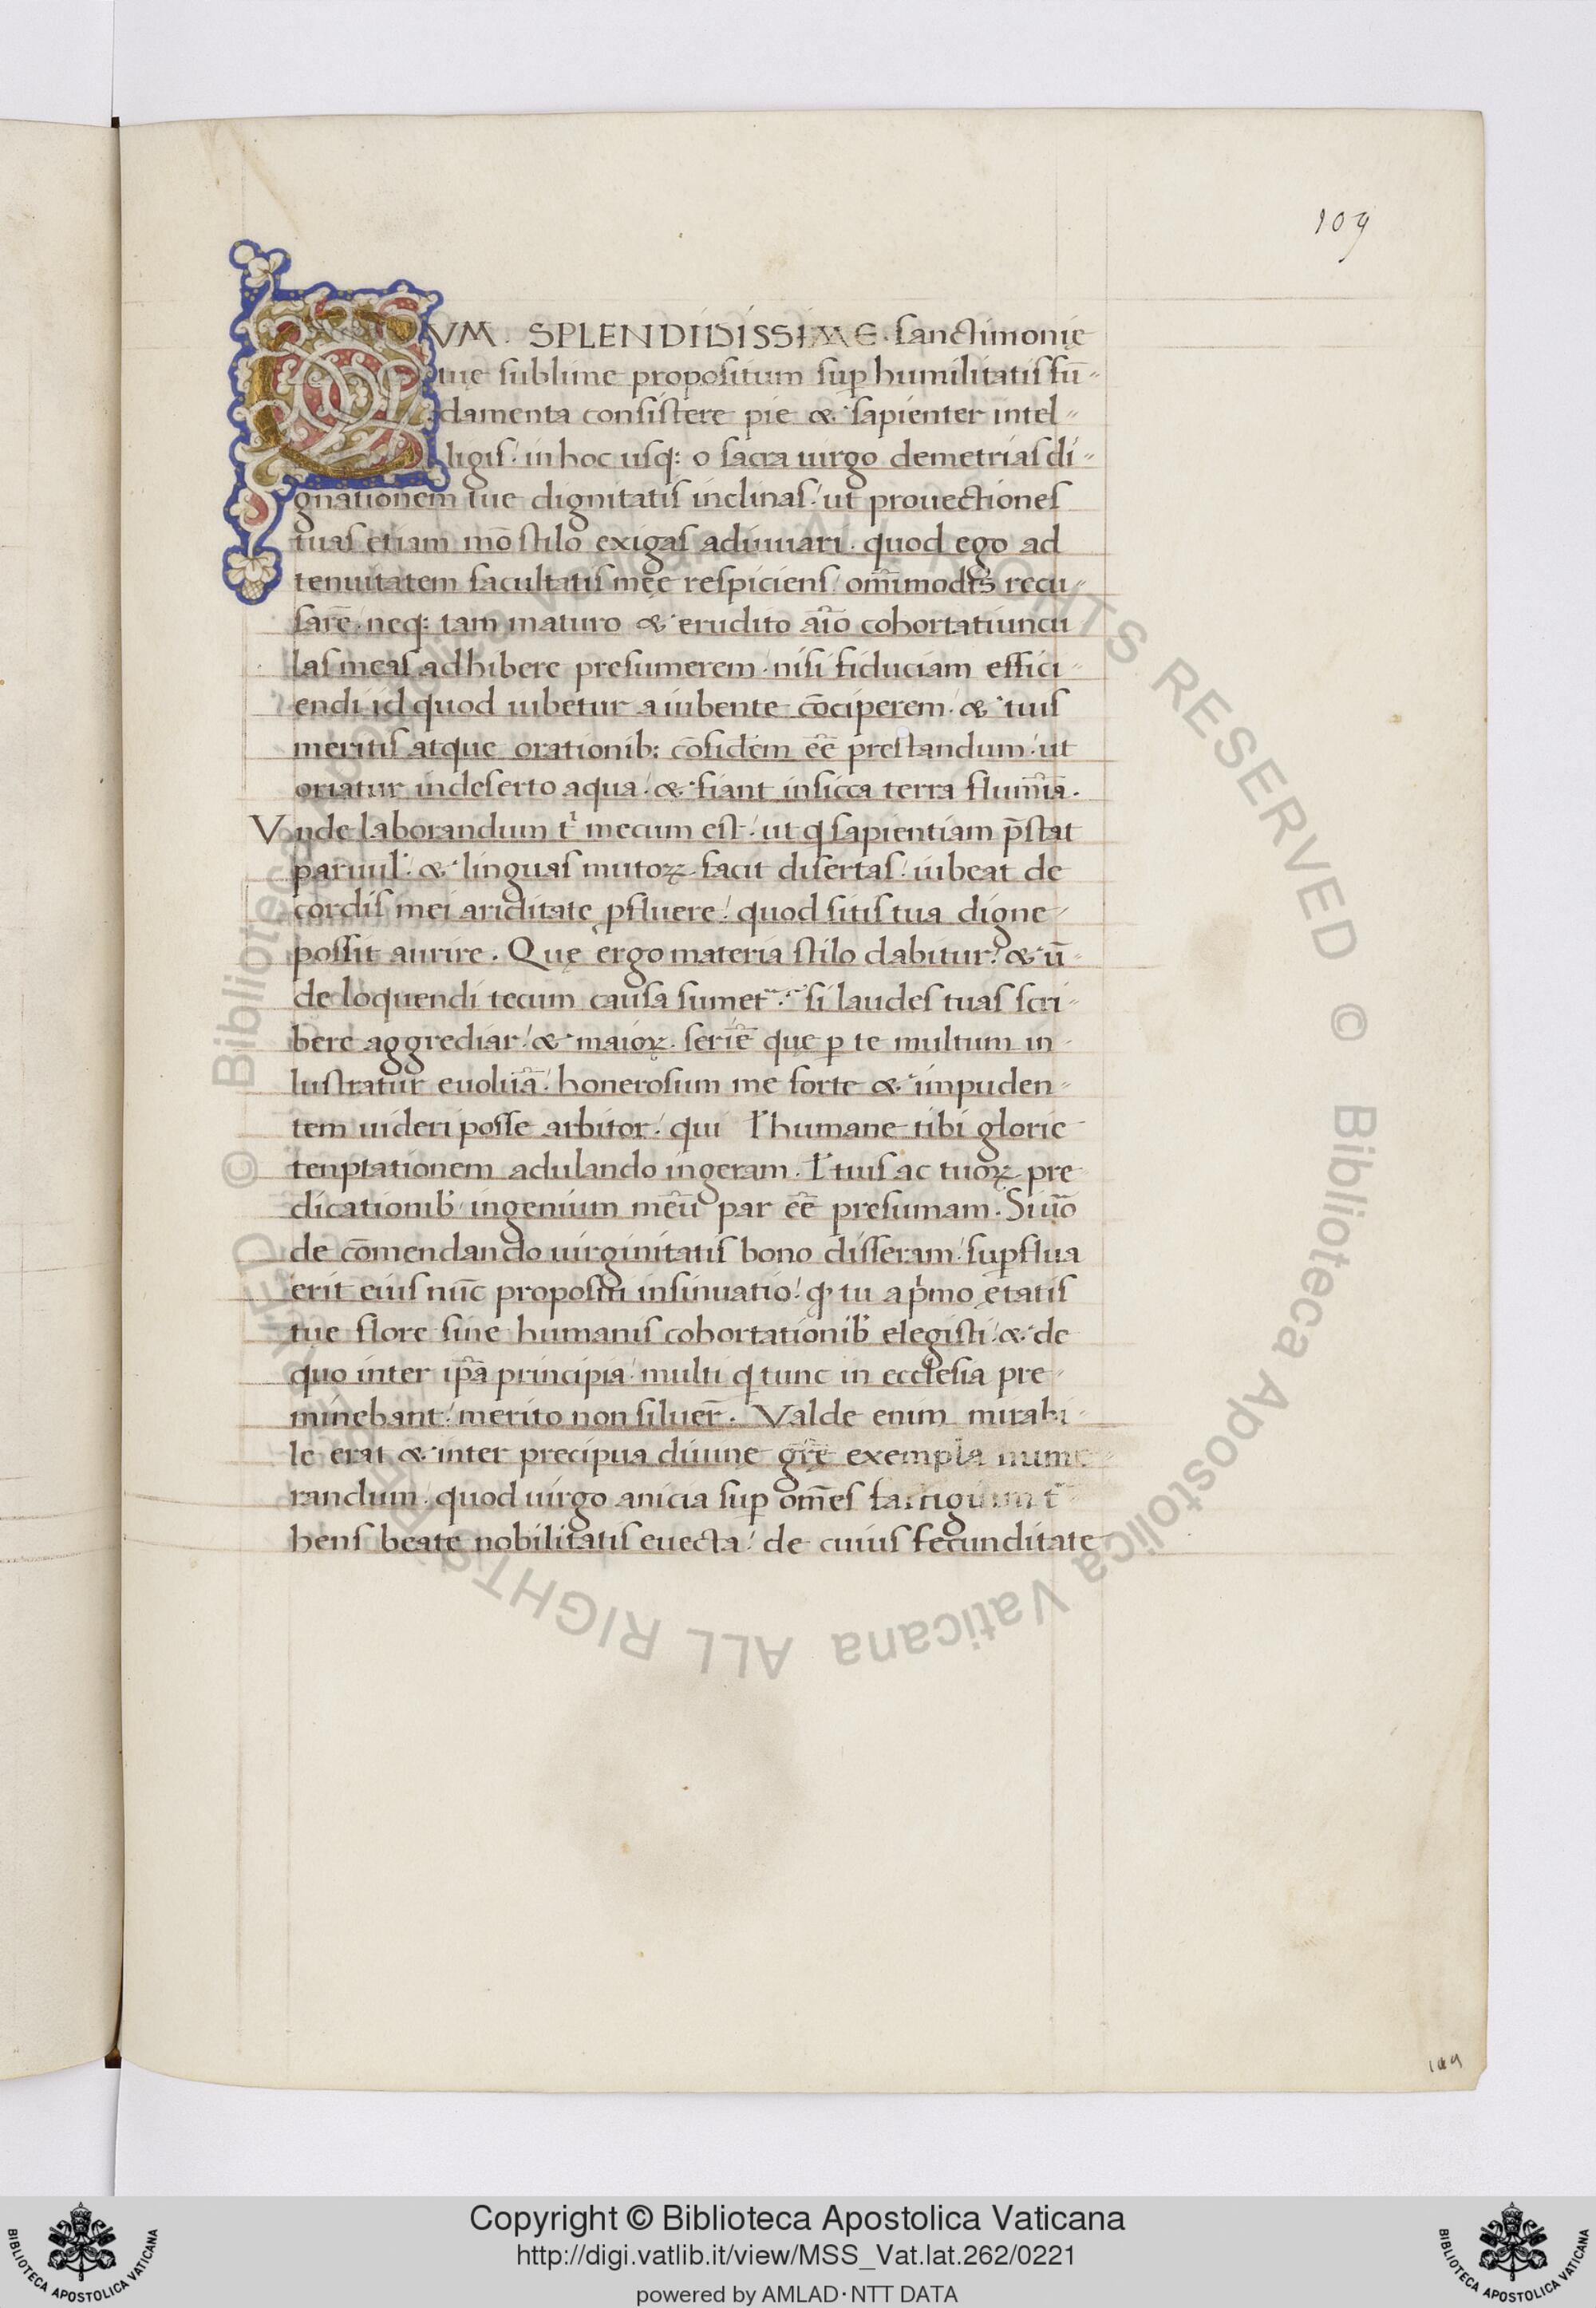 109
CVM. SPLENDIDISSIME. sanctimonię
tuę sublime propositum sup̱ humilitatis fū-
damenta consistere pie & sapienter intel-
ligis. in hoc usq: o sacra uirgo demetrias di-
gnationem tue dignitatis inclinas. ut prouectiones
tuas etiam mō stilo exigas adiuuari. quod ego ad
tenuitatem facultatis meę respiciens om̄imodis recu-
sarē. neq: tam maturo & erudito aīo cohortatiuncu
las meas adhibere presumerem. nisi fiduciam effici-
endi id quod iubetur a iubente cōciperem. & tuis
meritis atque orationib: cōfidem eē prestandum. ut
oriatur indeserto aqua. & fiant insicca terra flumīa.
Vnde laborandum tⁱ mecum est. ut q sapientiam p̄stat
paruul'. & linguas mutoꝝ facit disertas. iubeat de
cordis mei ariditate ꝓfluere. quod sitis tua digne
possit aurire. Quę ergo materia stilo dabitur? & ū-
de loquendi tecum causa sumet'? si laudes tuas scri-
bere aggrediar. & maioꝝ seriē que ꝑ te multum in-
lustratur euoluā. honerosum me forte & impuden-
tem uideri posse arbitor. qui ł humane tibi glorie
temptationem adulando ingeram. ł tuis ac tuoꝝ pre
dicationib' ingenium meū par eē presumam. Si uō
de cōmendando uirginitatis bono disseram. suꝑflua
erit eius nūc propositi insinuatio. qđ tu a p̍mo ętatis
tue flore sine humanis cohortationib' elegisti. & de
quo inter ip̄a principia. multi q tunc in ecclesia pre-
minebant. merito non siluer̄. Valde enim mirabi-
le erat & inter precipua diuinę gr̄ę exempla nume
randum. quod uirgo anicia suꝑ om̄es fastigium t'
hens beate nobilitatis euecta. de cuius fecunditate
109
Copyright © Biblioteca Apostolica Vaticana
http://digi.vatlib.it/view/MSS_Vat.lat.262/0221
powered by AMLAD·NTT DATA
BIBLIOTECA APOSTOLICA VATICANA
BIBLIOTECA APOSTOLICA VATICANA
© Biblioteca Apostolica Vaticana ALL RIGHTS RESERVED © Biblioteca Apostolica Vaticana ALL RIGHTS RESERVED